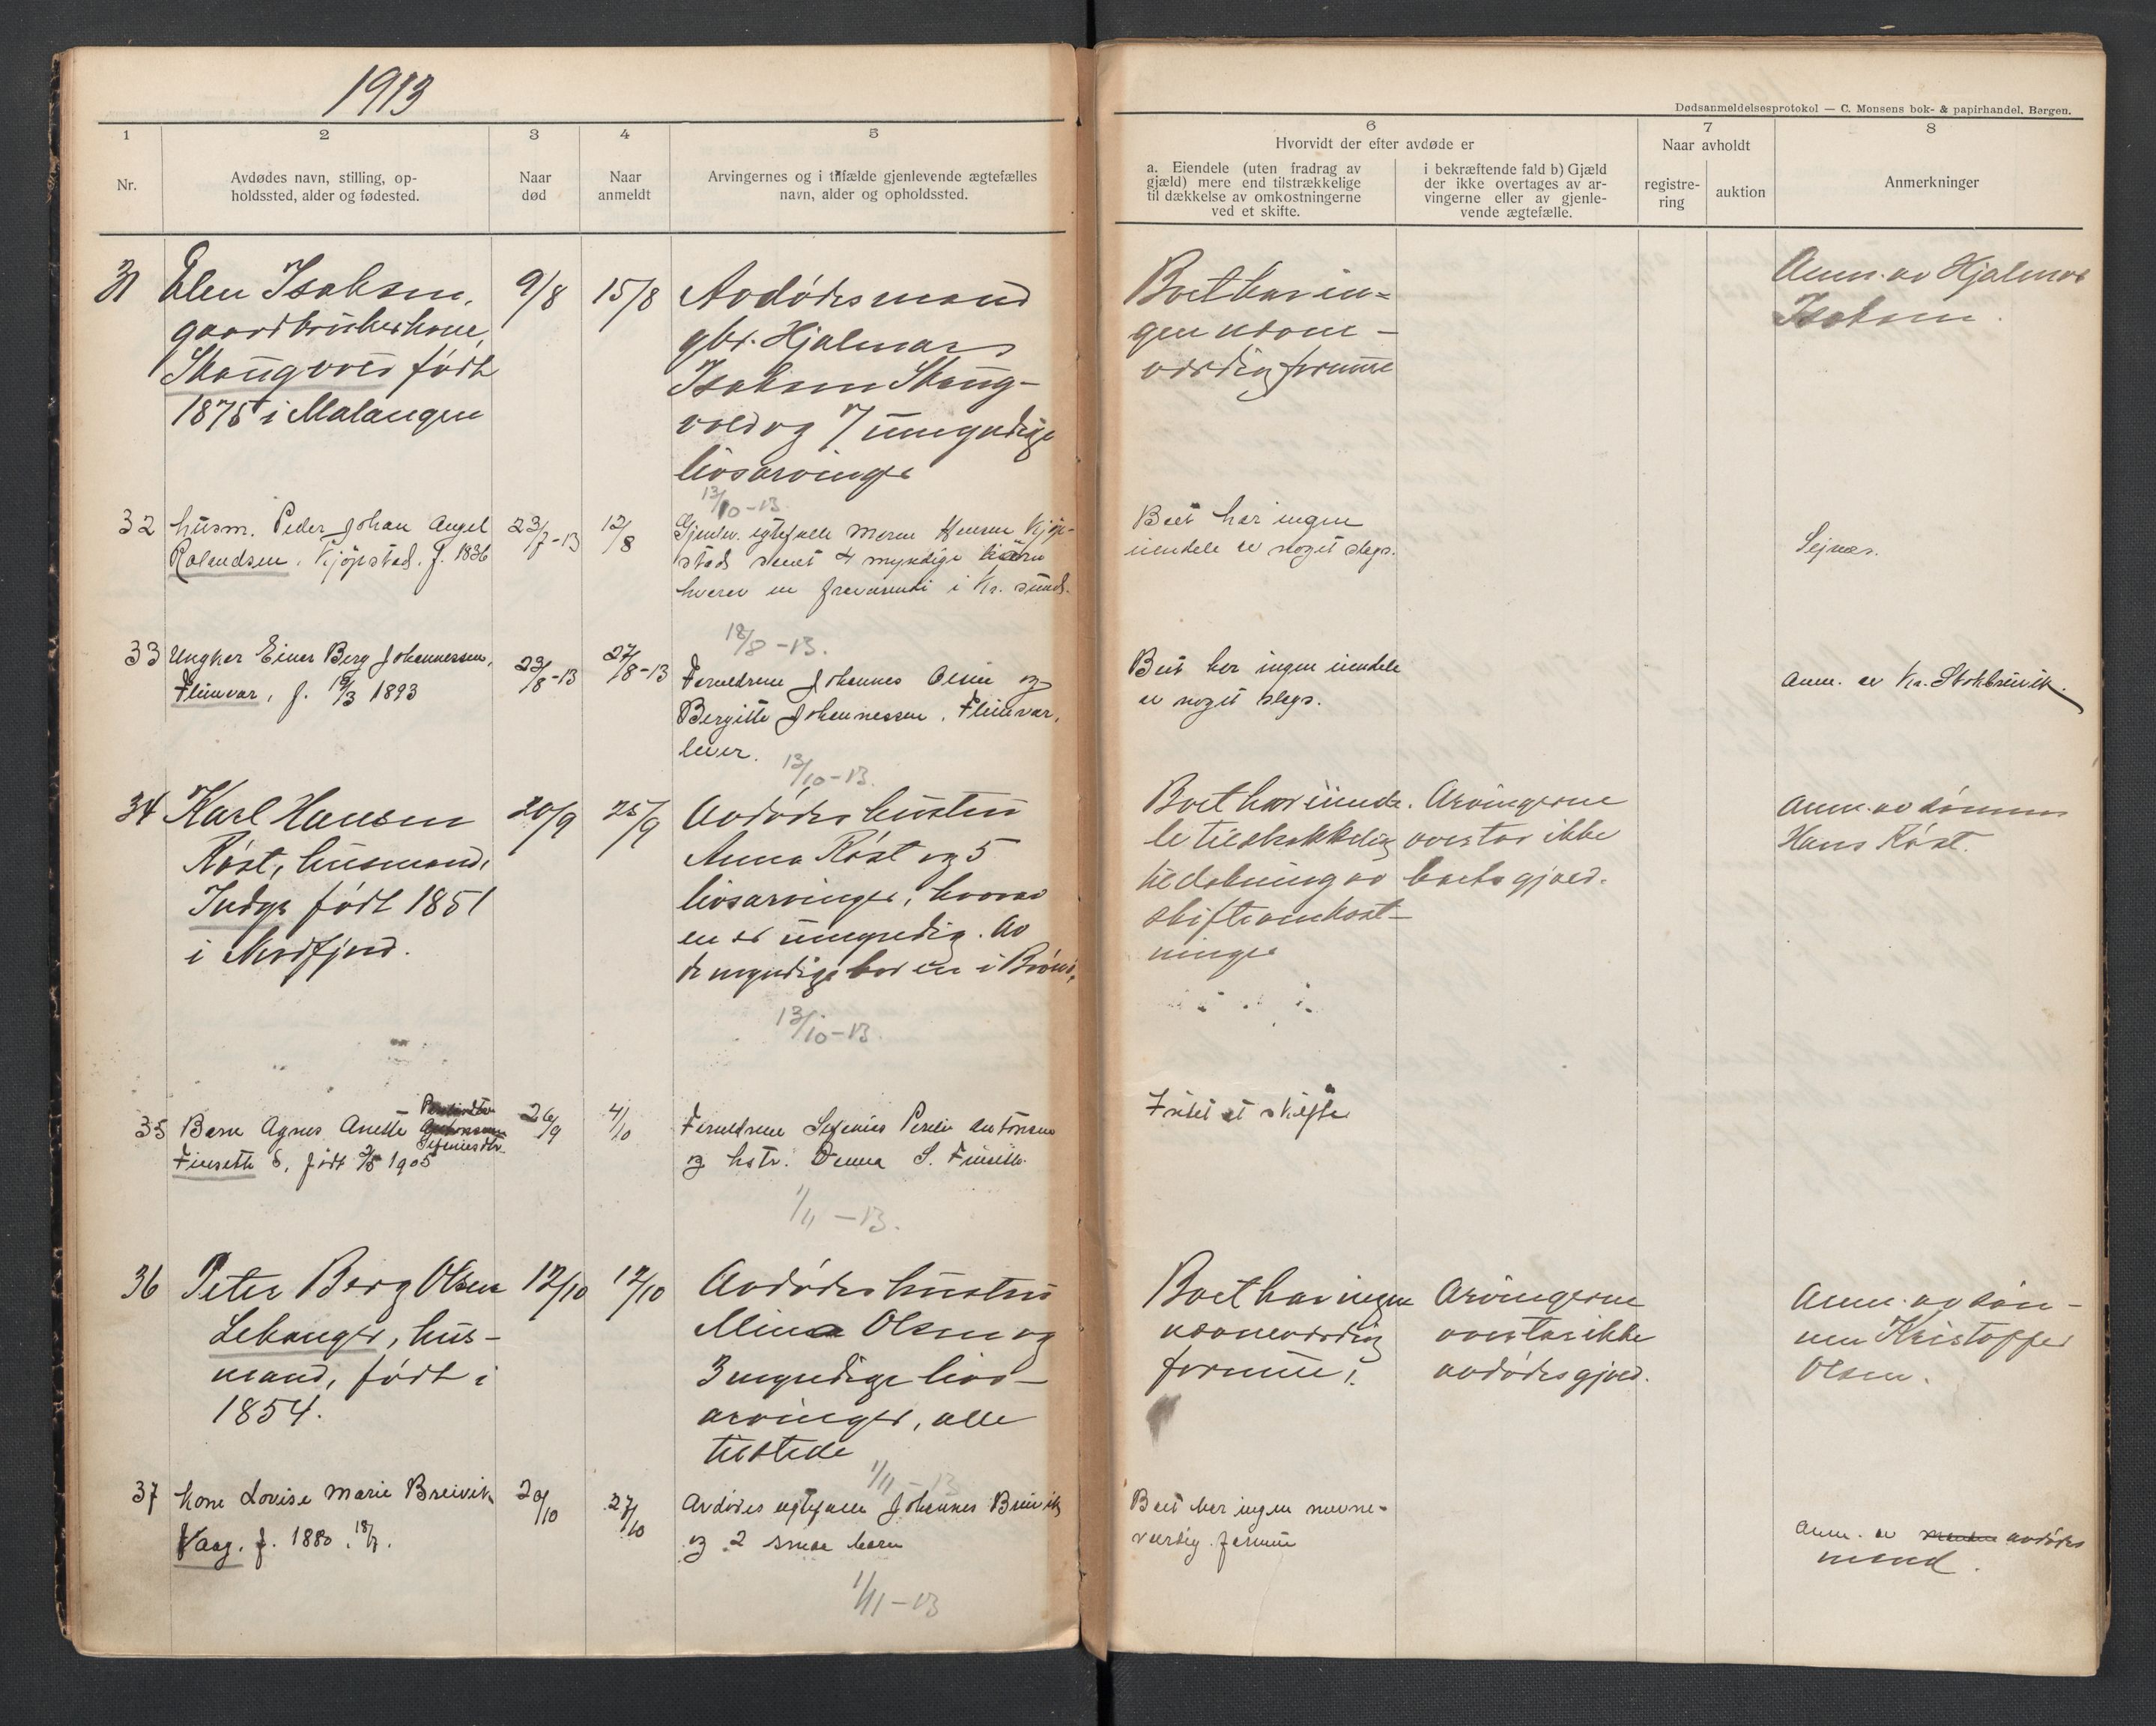 1913
Dødsanmeldelsesprotokol — C. Monsens bok- & papirhandel, Bergen.
1
2
3
4
5
6
7
8
Nr.
Avdødes navn, stilling, op-
holdssted, alder og fødested.
Naar
død
Naar
anmeldt
Arvingernes og i tilfælde gjenlevende ægtefælles
navn, alder og opholdssted.
Hvorvidt der efter avdøde er
a. Eiendele (uten fradrag av
gjæld) mere end tilstrækkelige
til dækkelse av omkostningerne
ved et skifte.
i bekræftende fald b) Gjæld
der ikke overtages av ar-
vingerne eller av gjenle-
vende ægtefælle.
Naar avholdt
registre-
ring
auktion
Anmerkninger
31
Elen Isaksen,
gaardbrukerkone,
Skaugvold født
1875 i Malangen
9/8
15/8
Avdødes mand
gbr. Hjalmar
Isaksen Skaug-
vold og 7 umyndige
livsarvinger
13/10-13
Boet har in-
gen nævne-
værdig formue
Anm. av Hjalmar
Isaksen.
32
Husm. Peder Johan Angel
Rolandsen, Kjöpstad. f. 1836
23/7-13
12/8
Gjenlev. egtefælle Maren Hansen Kjöp-
stad samt 4 myndige barn
hvorav en fraværende i Kr. sund.
18/8-13.
Boet har ingen
eiendele av noget slags.
33
Ungkar Einar Berg Johannessen,
Fleinvær, f. 19/3 1893
23/8-13
27/8-13
Foreldrene Johannes Olsen og
Bergitte Johannessen, Fleinvær,
lever.
13/10-13.
Boet har ingen eiendele
av noget slags.
Anm. av Kr. Stokbreivik.
34
Karl Hansen
Røst, husmand,
Indyr født 1851
i Nordfjord.
20/9
25/9
Avdødes hustru
Anna Røst og 5
livsarvinger, hvorav
en er umyndig. Av
de myndige bor en i
13/10-13.
Boet har eiende-
le tilstrækkelig
til dækning av
skifteomkost-
ninger
Arvingerne
overtar ikke
boets gjæld.
Anm. av sønnen
Hans Røst.
35
Barn Agnes Anette
Sefeniasdtr.
Finsæth S, født 2/5 1905
26/9
4/10
Foreldrene Sefenias Antonsen
og hstr. S. Finsæth.
1/11-13.
Intet at skifte
36
Peter Berg Olsen
Lekanger, hus-
mand, født i
1854.
12/10
17/10
Avdødes hustru
Mina Olsen og
3 myndige livs-
arvinger, alle
tilstede
1/11-13
Boet har ingen
nævneværdig
formue.
Arvingerne
overtar ikke
avdødes gjæld.
Anm. av søn-
nen Kristoffer
Olsen.
37
Kone Lovise Marie Breivik
Vaag. f. 1880. 18/7.
20/10
27/10
Avdødes egtefælle Johannes Breivik
og 2 smaa barn
1/11-13
Boet har ingen nævne-
værdig formue
Anm. av avdødes
mand.